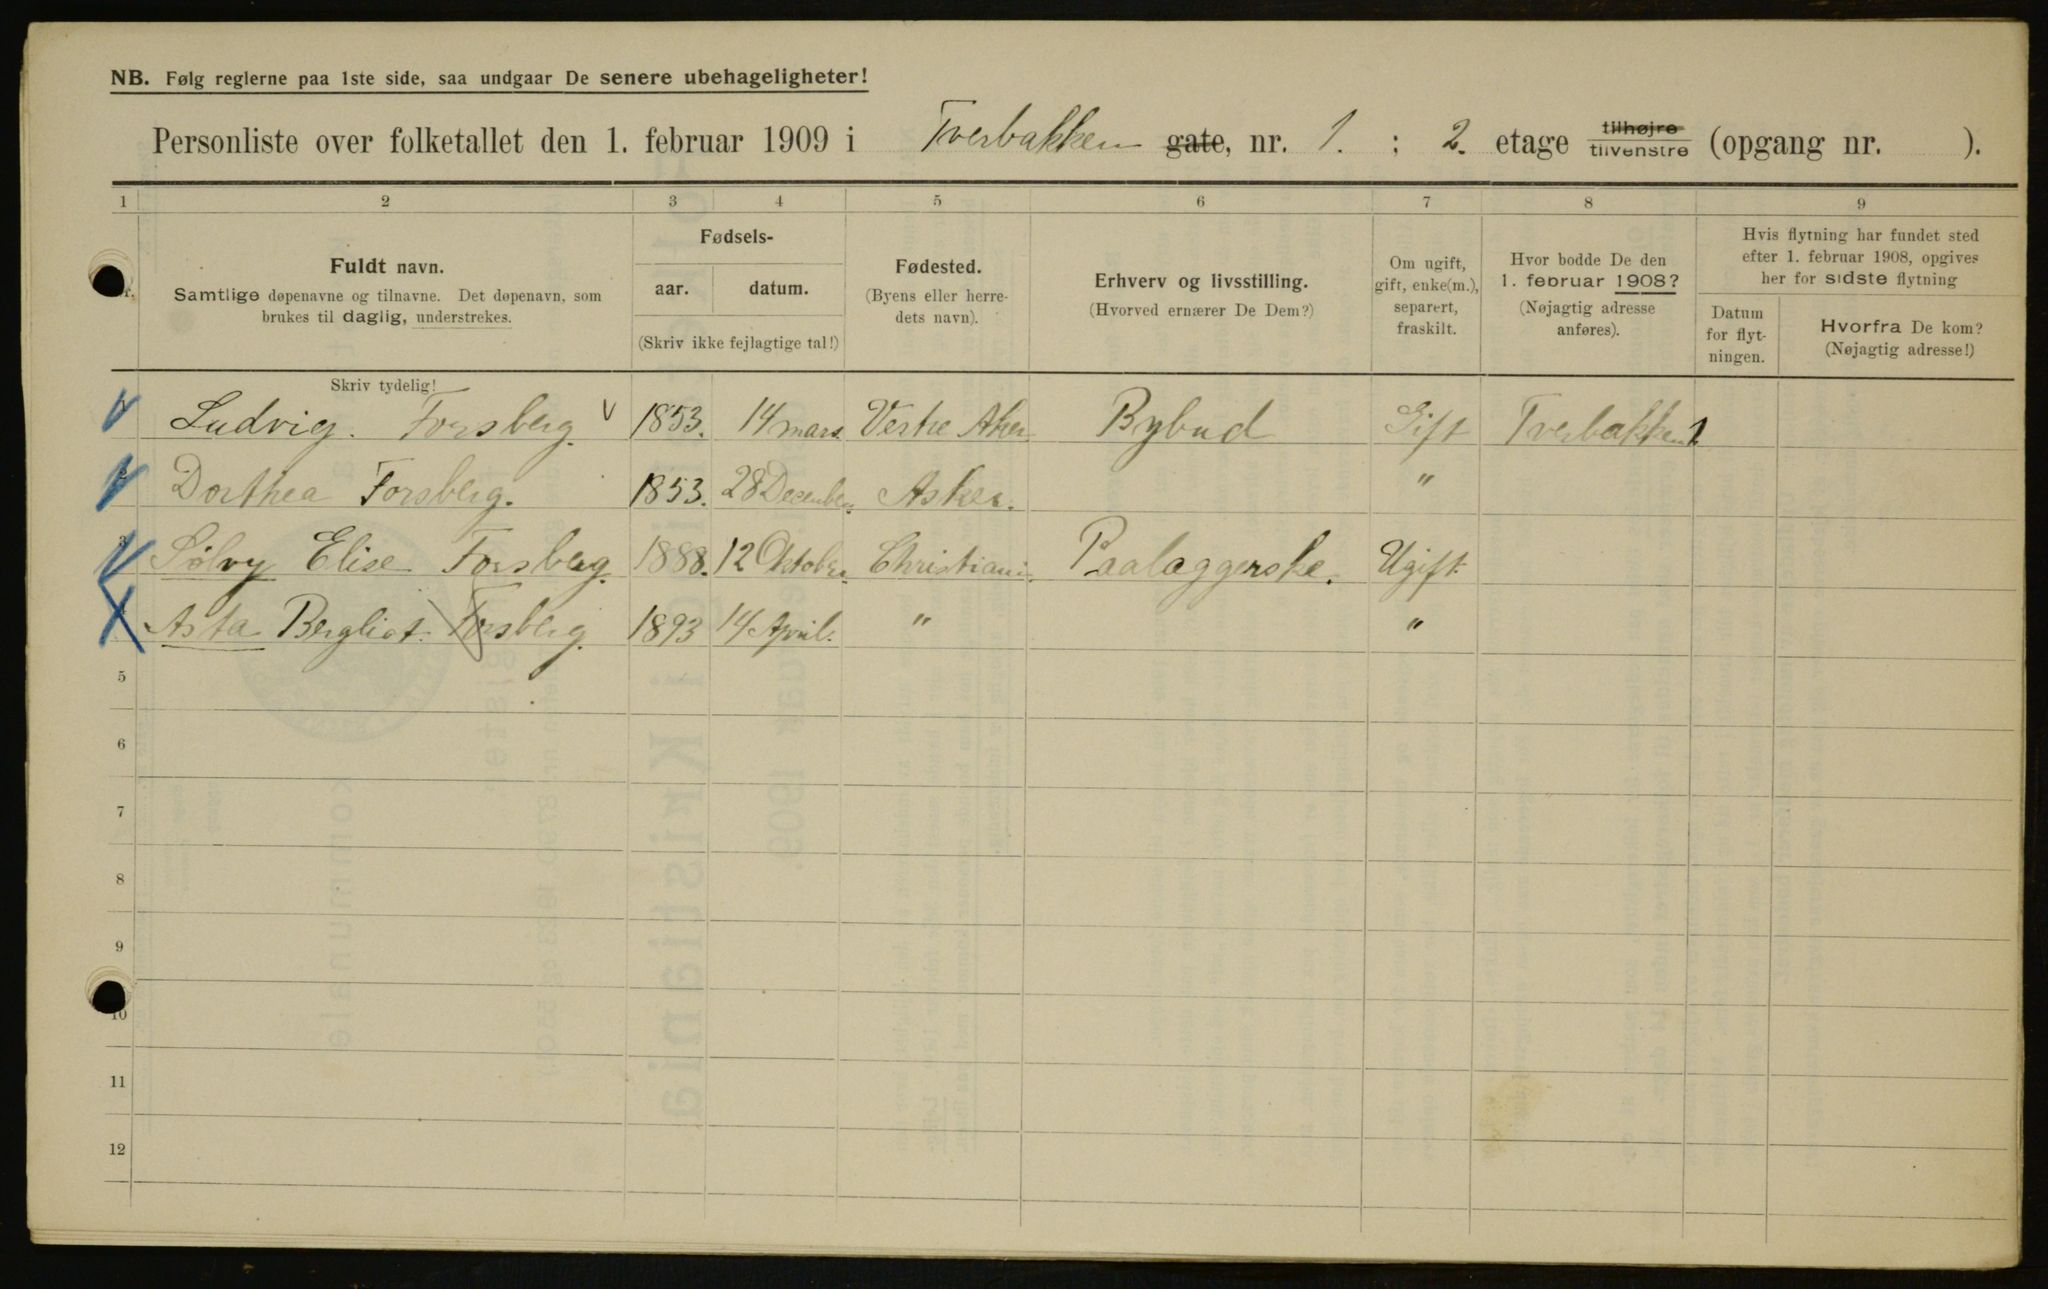 NB. Følg reglerne paa 1ste side, saa undgaar De senere ubehageligheter!
Personliste over folketallet den 1. februar 1909 i Tverbakken gate, nr. 1. ; 2. etage tilhøjre tilvenstre (opgang nr. ).
1 2 3 4 5 6 7 8 9
Fuldt navn.
Samtlige døpenavne og tilnavne. Det døpenavn, som
brukes til daglig, understrekes.
Skriv tydelig!
Fødsels-
aar. datum.
(Skriv ikke fejlagtige tal!)
Fødested.
(Byens eller herre-
dets navn).
Erhverv og livsstilling.
(Hvorved ernærer De Dem?)
Om ugift,
gift, enke(m.),
separert,
fraskilt.
Hvor bodde De den
1. februar 1908?
(Nøjagtig adresse
anføres).
Hvis flytning har fundet sted
efter 1. februar 1908, opgives
her for sidste flytning
Datum
for flyt-
ningen.
Hvorfra De kom?
(Nøjagtig adresse!)
Ludvig. Forsberg. 1853. 14 mars. Vestre Aker Bybud Gift Tverbakken 1
Dorthea Forsberg. 1853. 28 December. Asker. "
3 Sølvy Elise Forsberg. 1888. 12 Oktober. Christiania. Paalæggerske. Ugift
4 Asta Bergliot Forsberg. 1893 14 April. " "
5
6
7
8
9
10
11
12